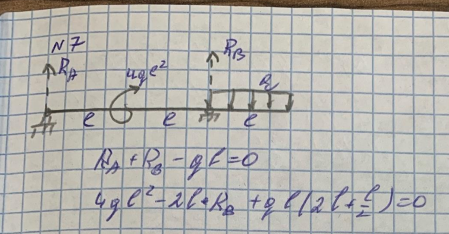 N7
R_A
4qe²
R_B
q
e e e
R_A + R_B - ql = 0
4ql² - 2l • R_B + ql(2l + l/2) = 0